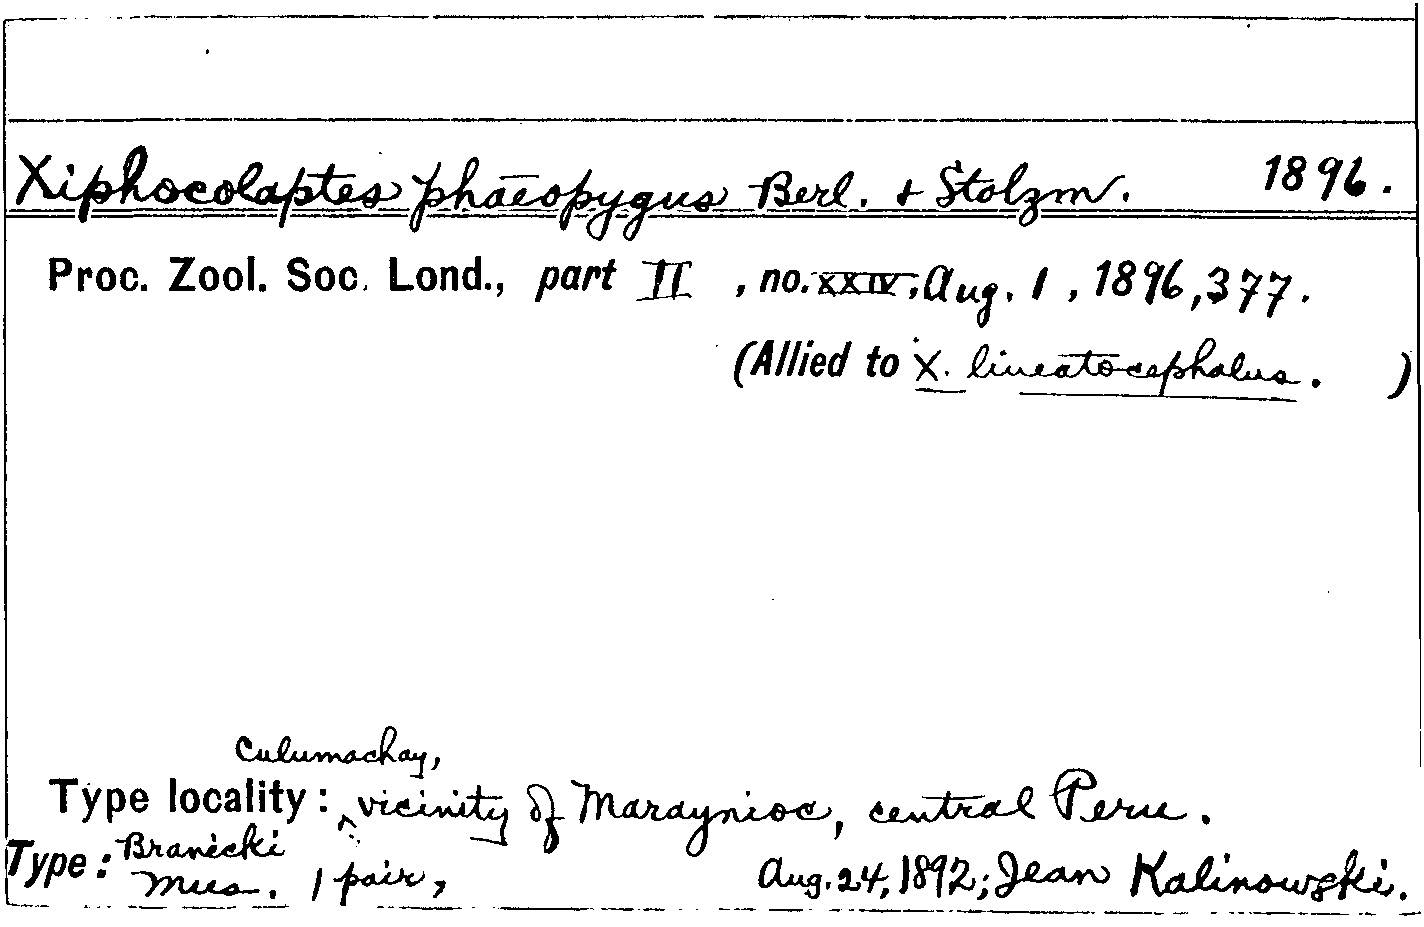 Xiphocolaptes phaeopygus Berl. & Stolzm. 1896.
Proc. Zool. Soc. Lond., part II, no. XXIV, Aug. 1, 1896, 377.
(Allied to X. lineatocephalus. )
Culumachay,
Type locality: ^ vicinity of Maraynioc, central Peru.
Type: Branicki Mus. 1 pair, Aug. 24, 1892; Jean Kalinowski.